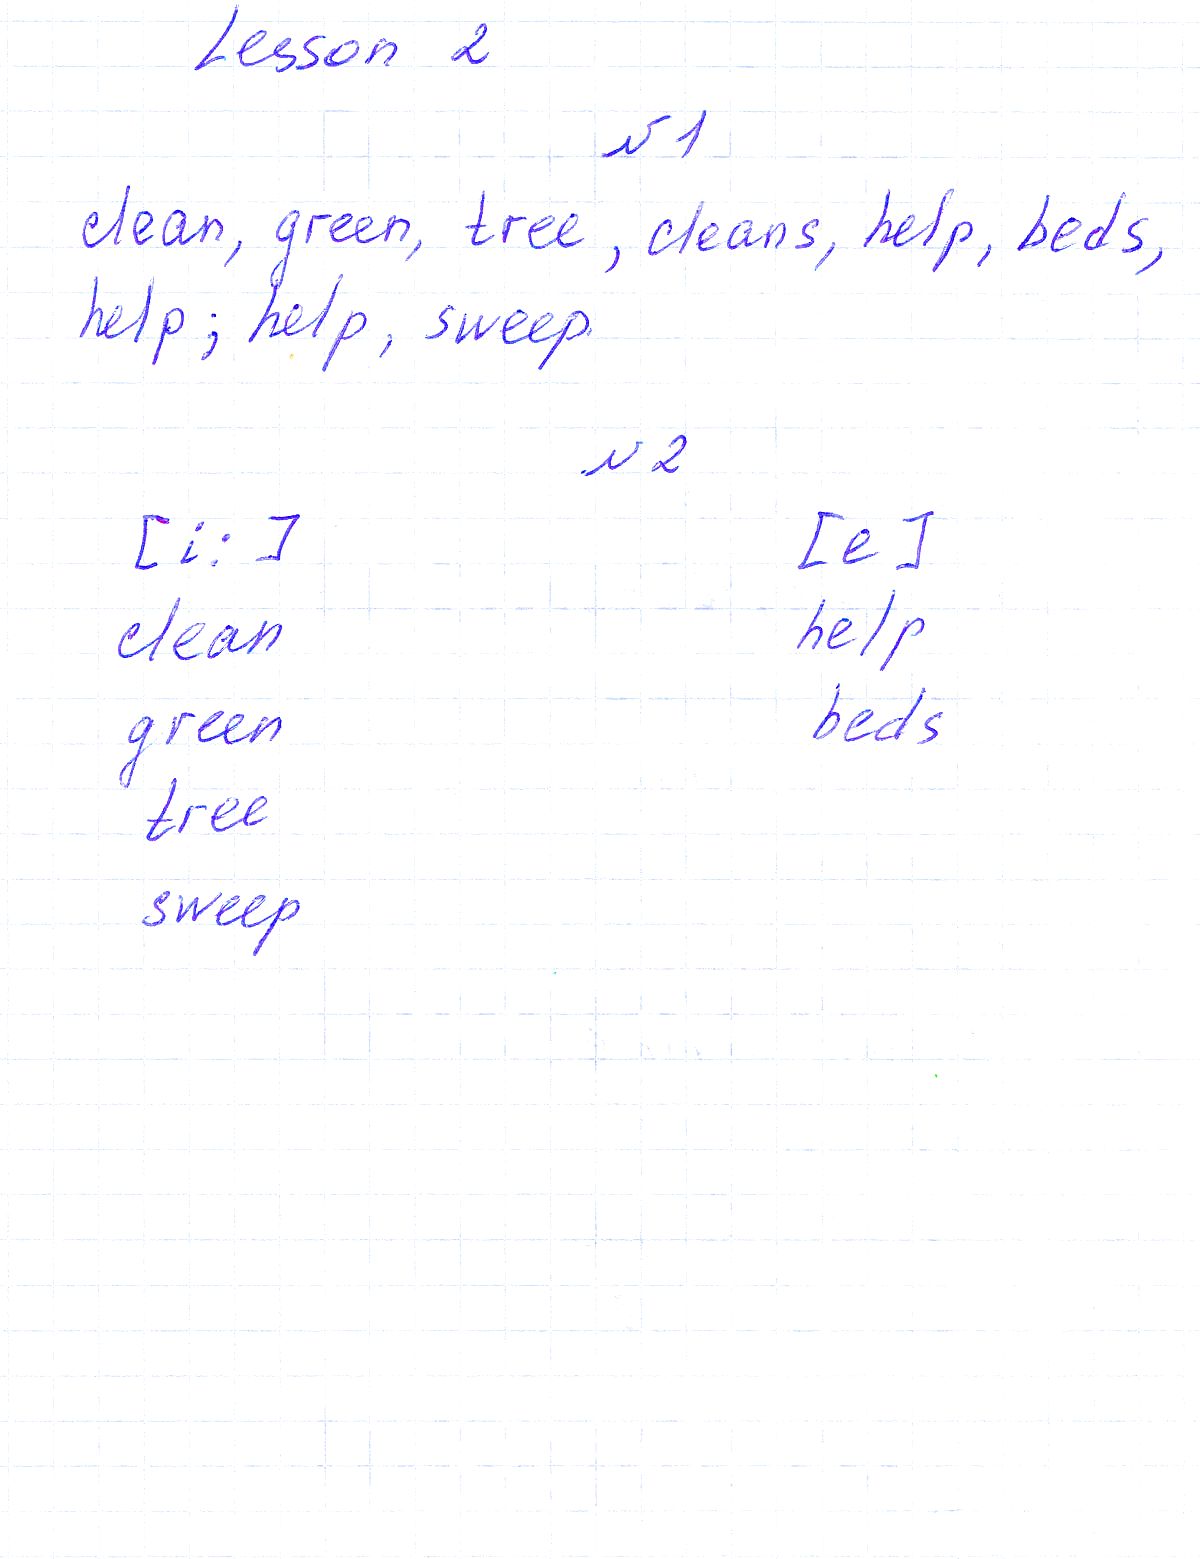 Lesson 2
№1
clean, green, tree, cleans, help, beds,
help; help, sweep
№2
[i:] [e]
clean help
green beds
tree
sweep